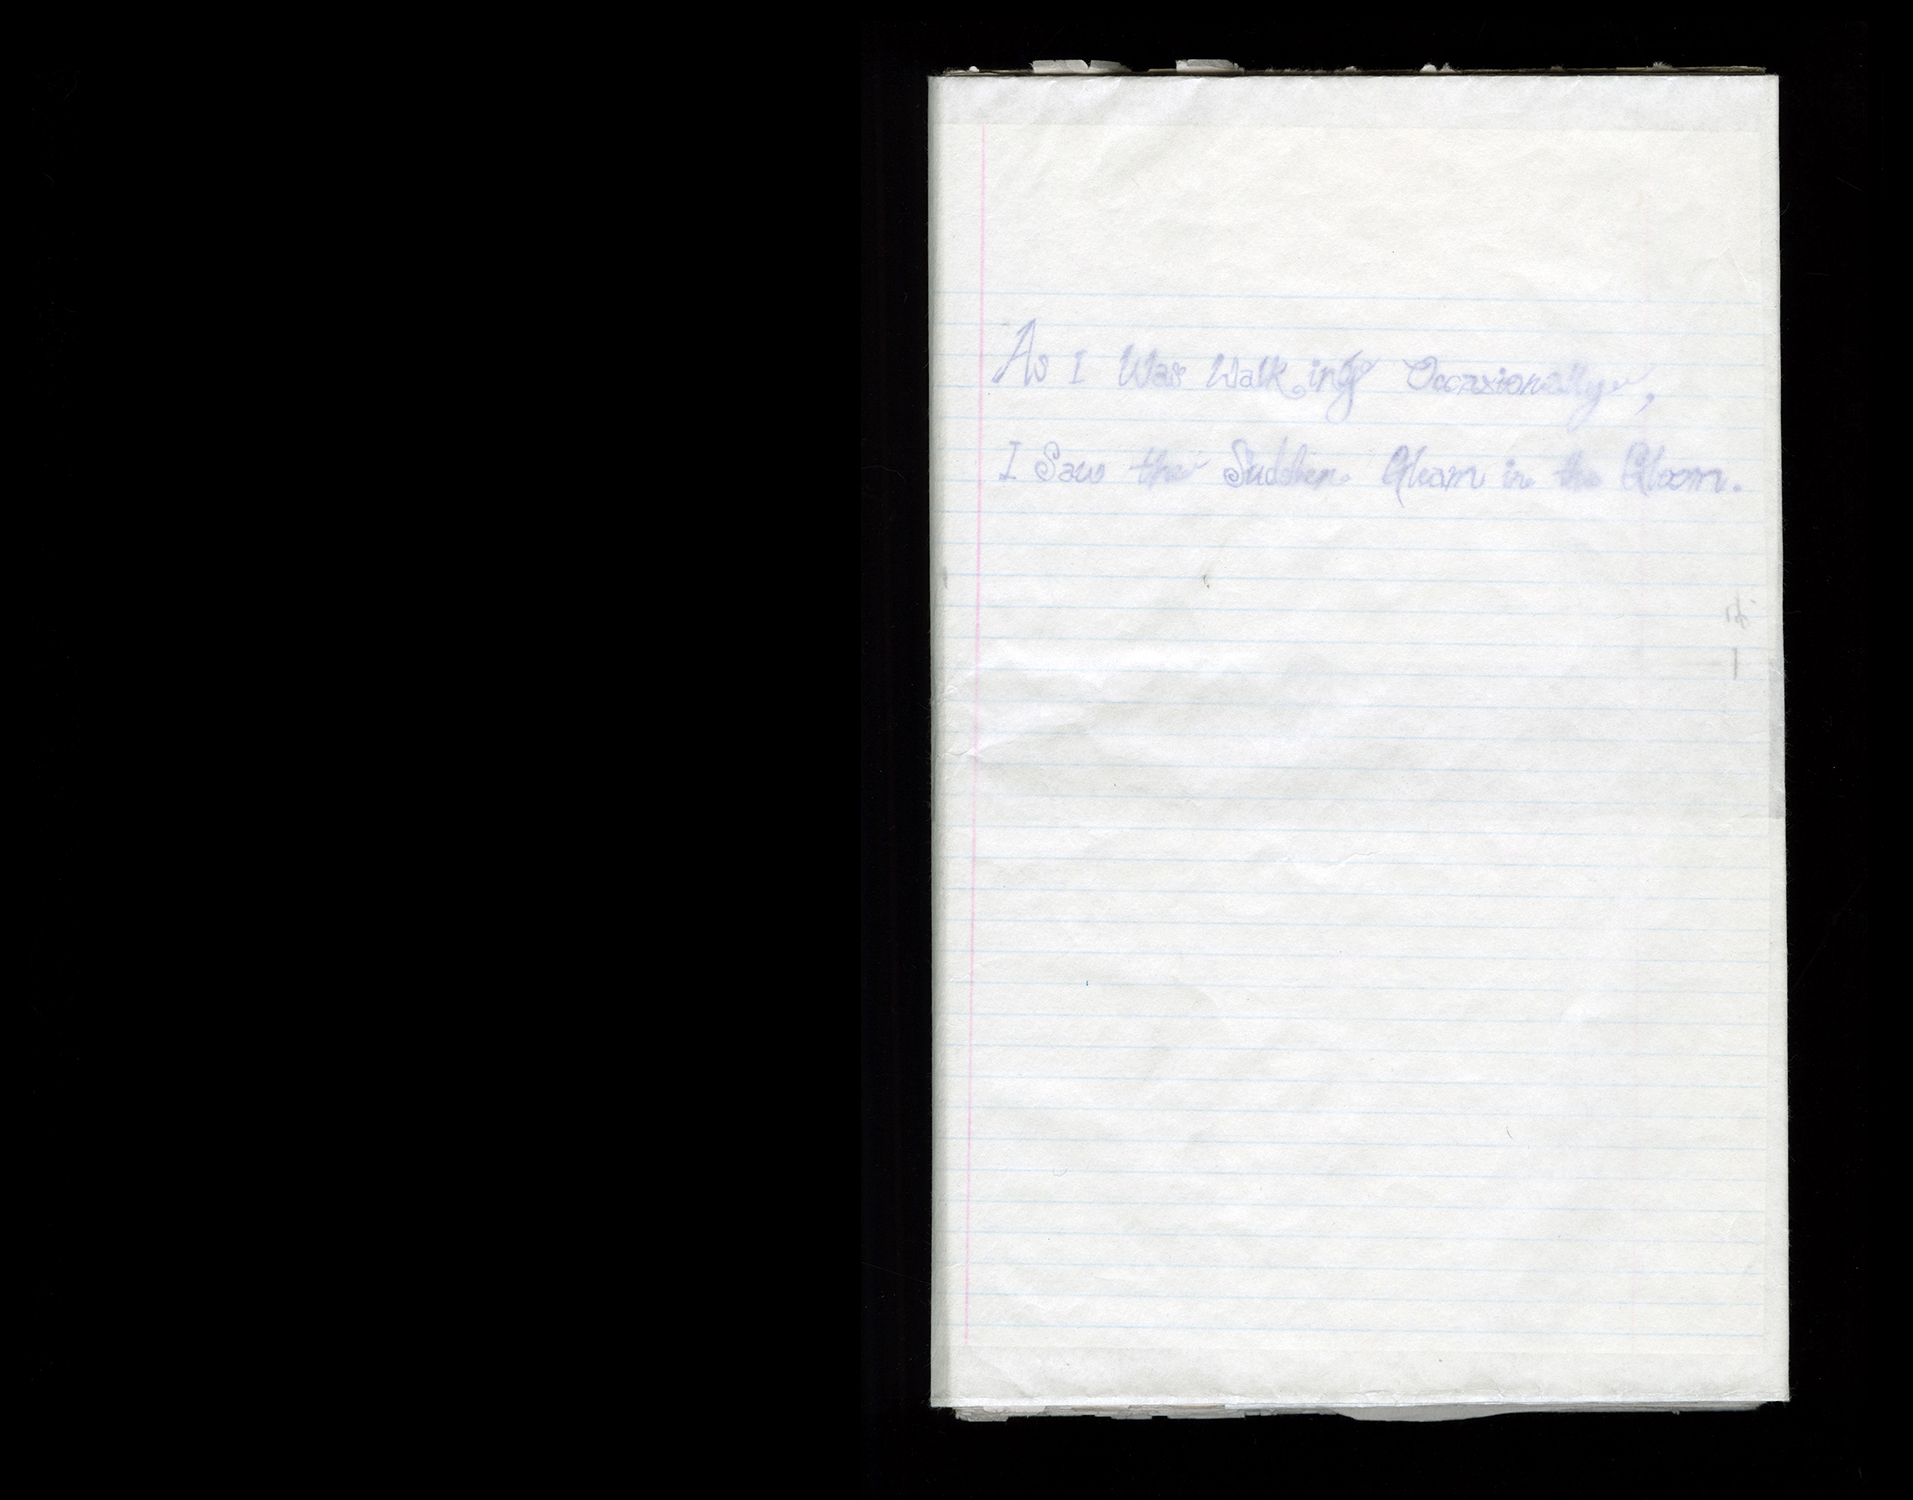 As I Was Walking Occasionally,
I Saw the Sudden Gleam in the Gloom.